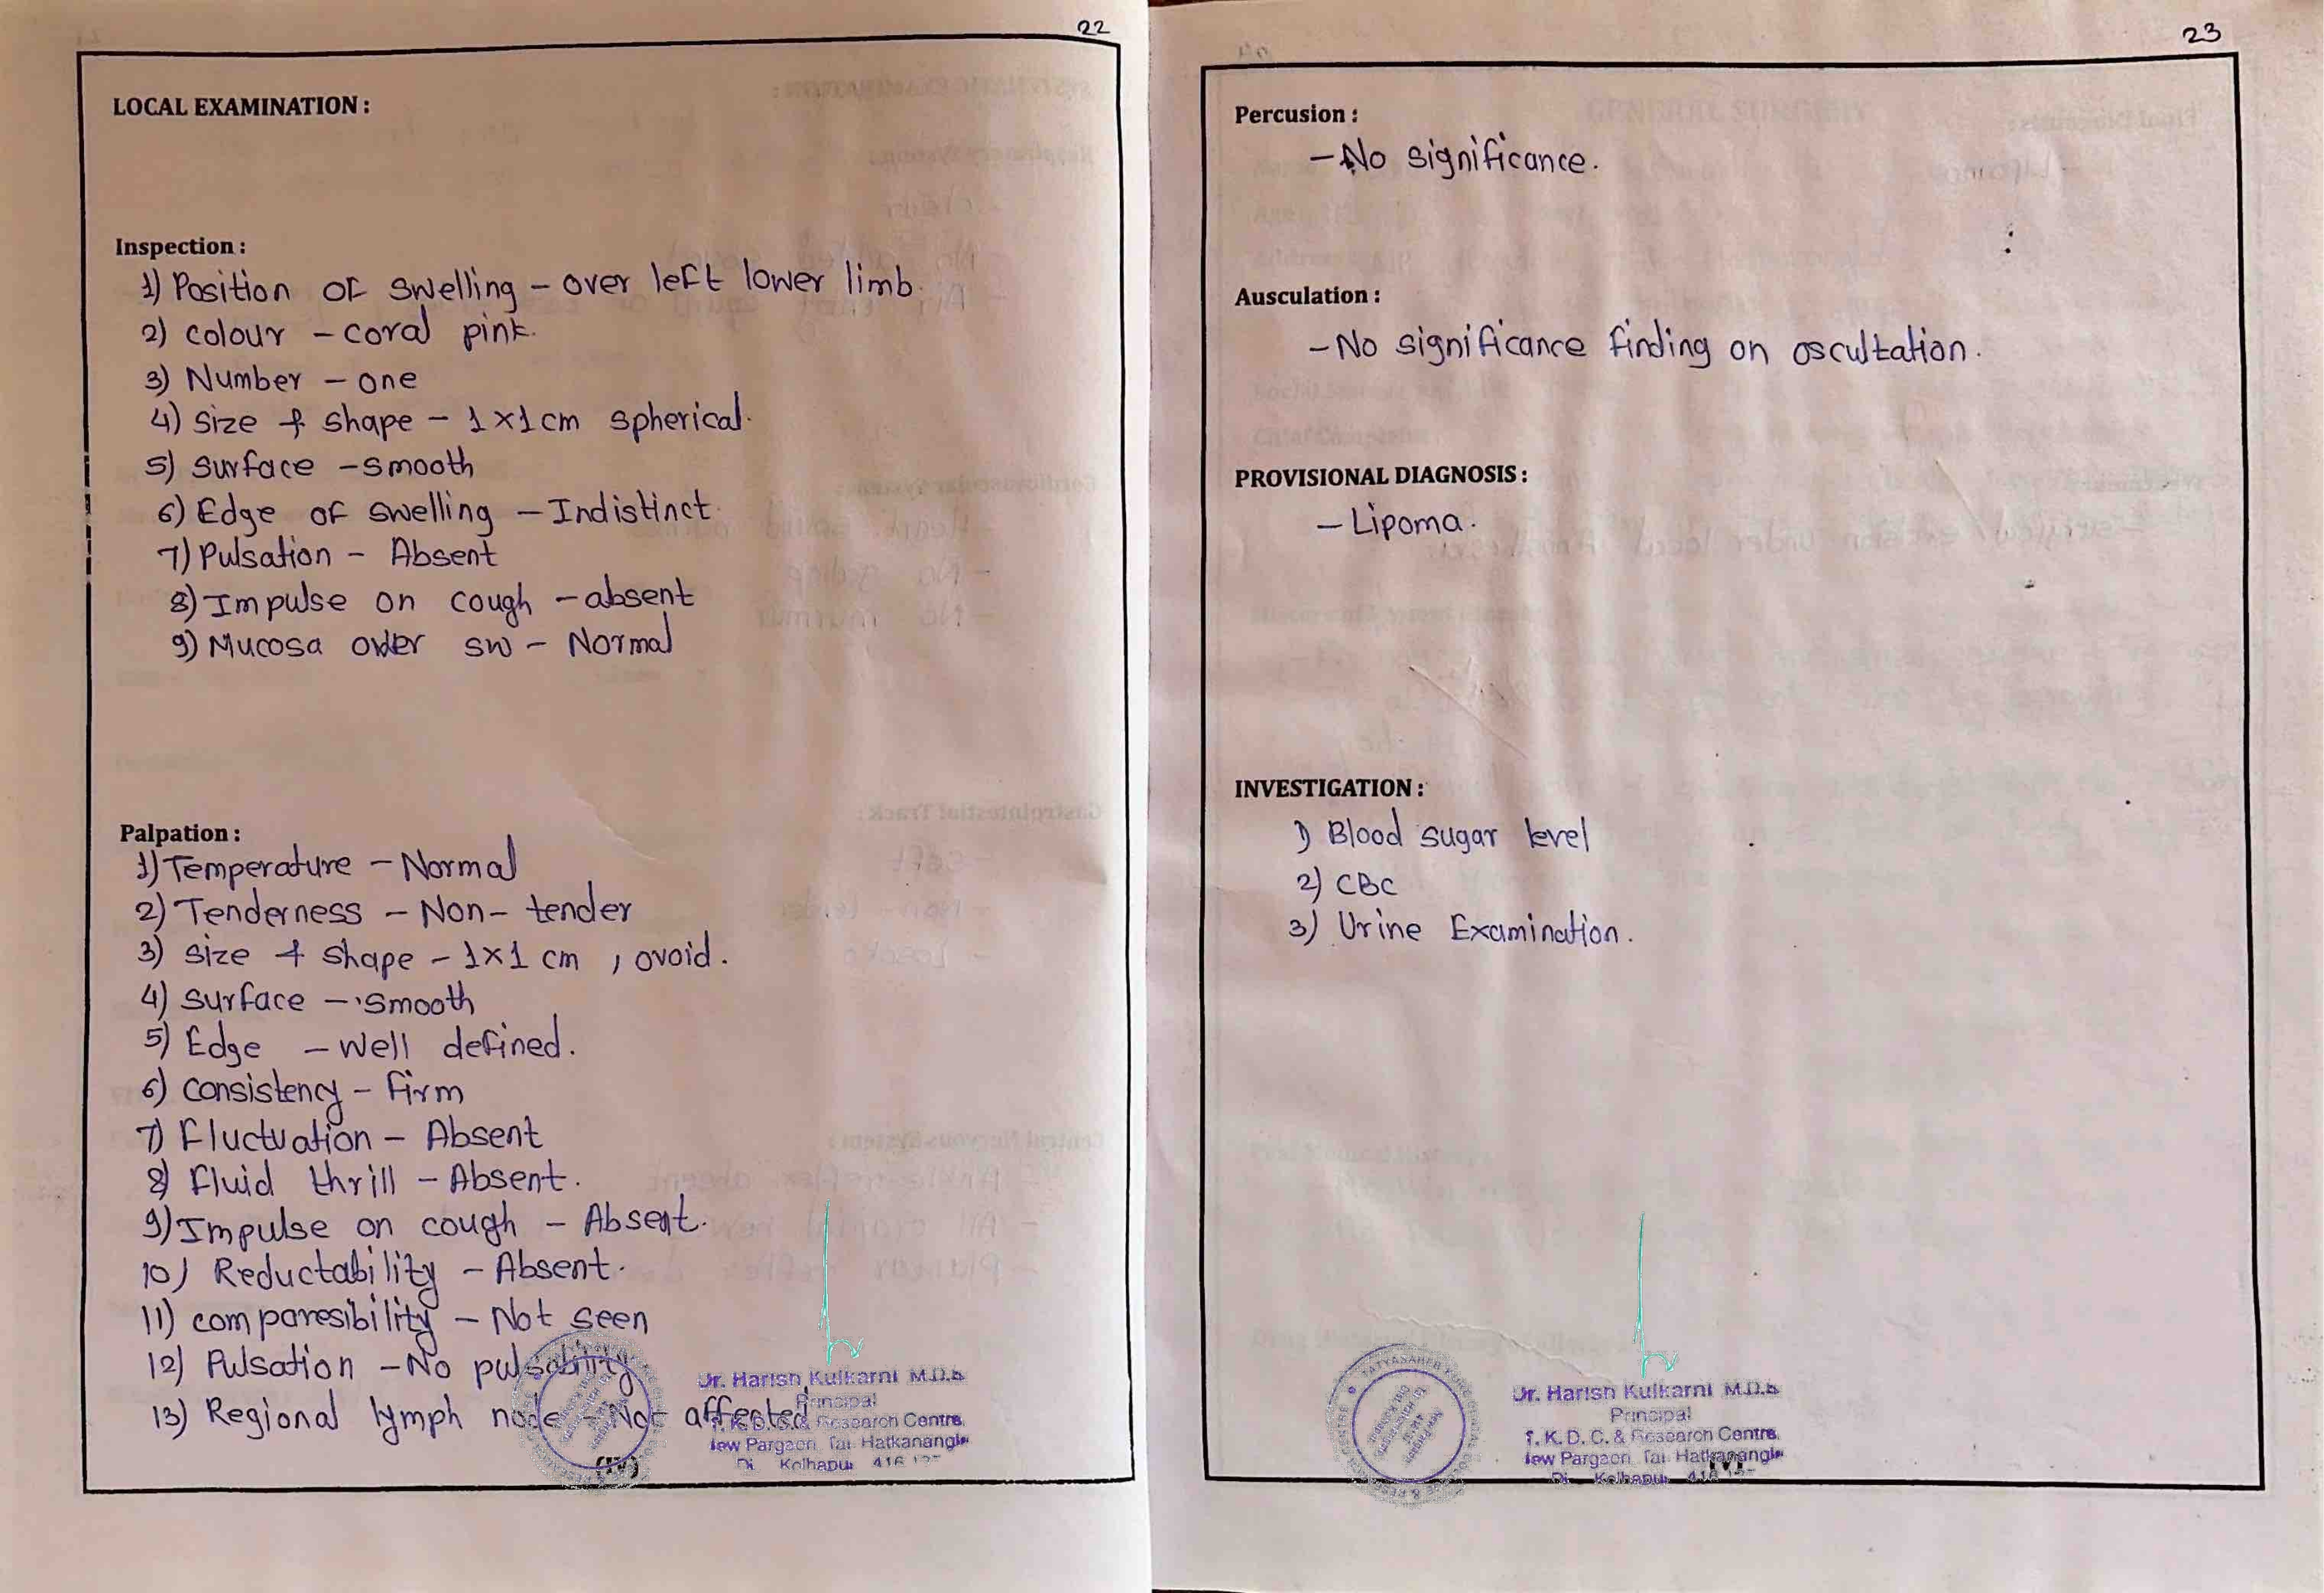 22
LOCAL EXAMINATION :
Inspection :
1) Position of swelling - over left lower limb.
2) colour - coral pink.
3) Number - one
4) size & shape - 1x1cm spherical.
5) surface - smooth
6) Edge of swelling - Indistinct.
7) Pulsation - Absent
8) Impulse on cough - absent
9) Mucosa over sw - Normal
Palpation :
1) Temperature - Normal
2) Tenderness - Non-tender
3) size & shape - 1x1 cm, ovoid.
4) surface - smooth
5) Edge - well defined.
6) consistency - firm
7) Fluctuation - Absent
8) Fluid thrill - Absent.
9) Impulse on cough - Absent.
10) Reductability - Absent.
11) comparesibility - Not seen
12) Pulsation - No pulsability
13) Regional lymph node - Not affected
(IV)
Dr. Harish Kulkarni M.D.S
Principal
T. K. D. C. & Research Centre,
New Pargaon, Tal Hatkanangle
Di Kolhapur 416
23
Percusion :
- No significance.
Ausculation :
- No significance finding on oscultation.
PROVISIONAL DIAGNOSIS :
- Lipoma.
INVESTIGATION :
1) Blood sugar level
2) CBC
3) Urine Examination.
Dr. Harish Kulkarni M.D.S
Principal
T. K. D. C. & Research Centre,
New Pargaon Tal Hatkanangle
Di Kolhapur